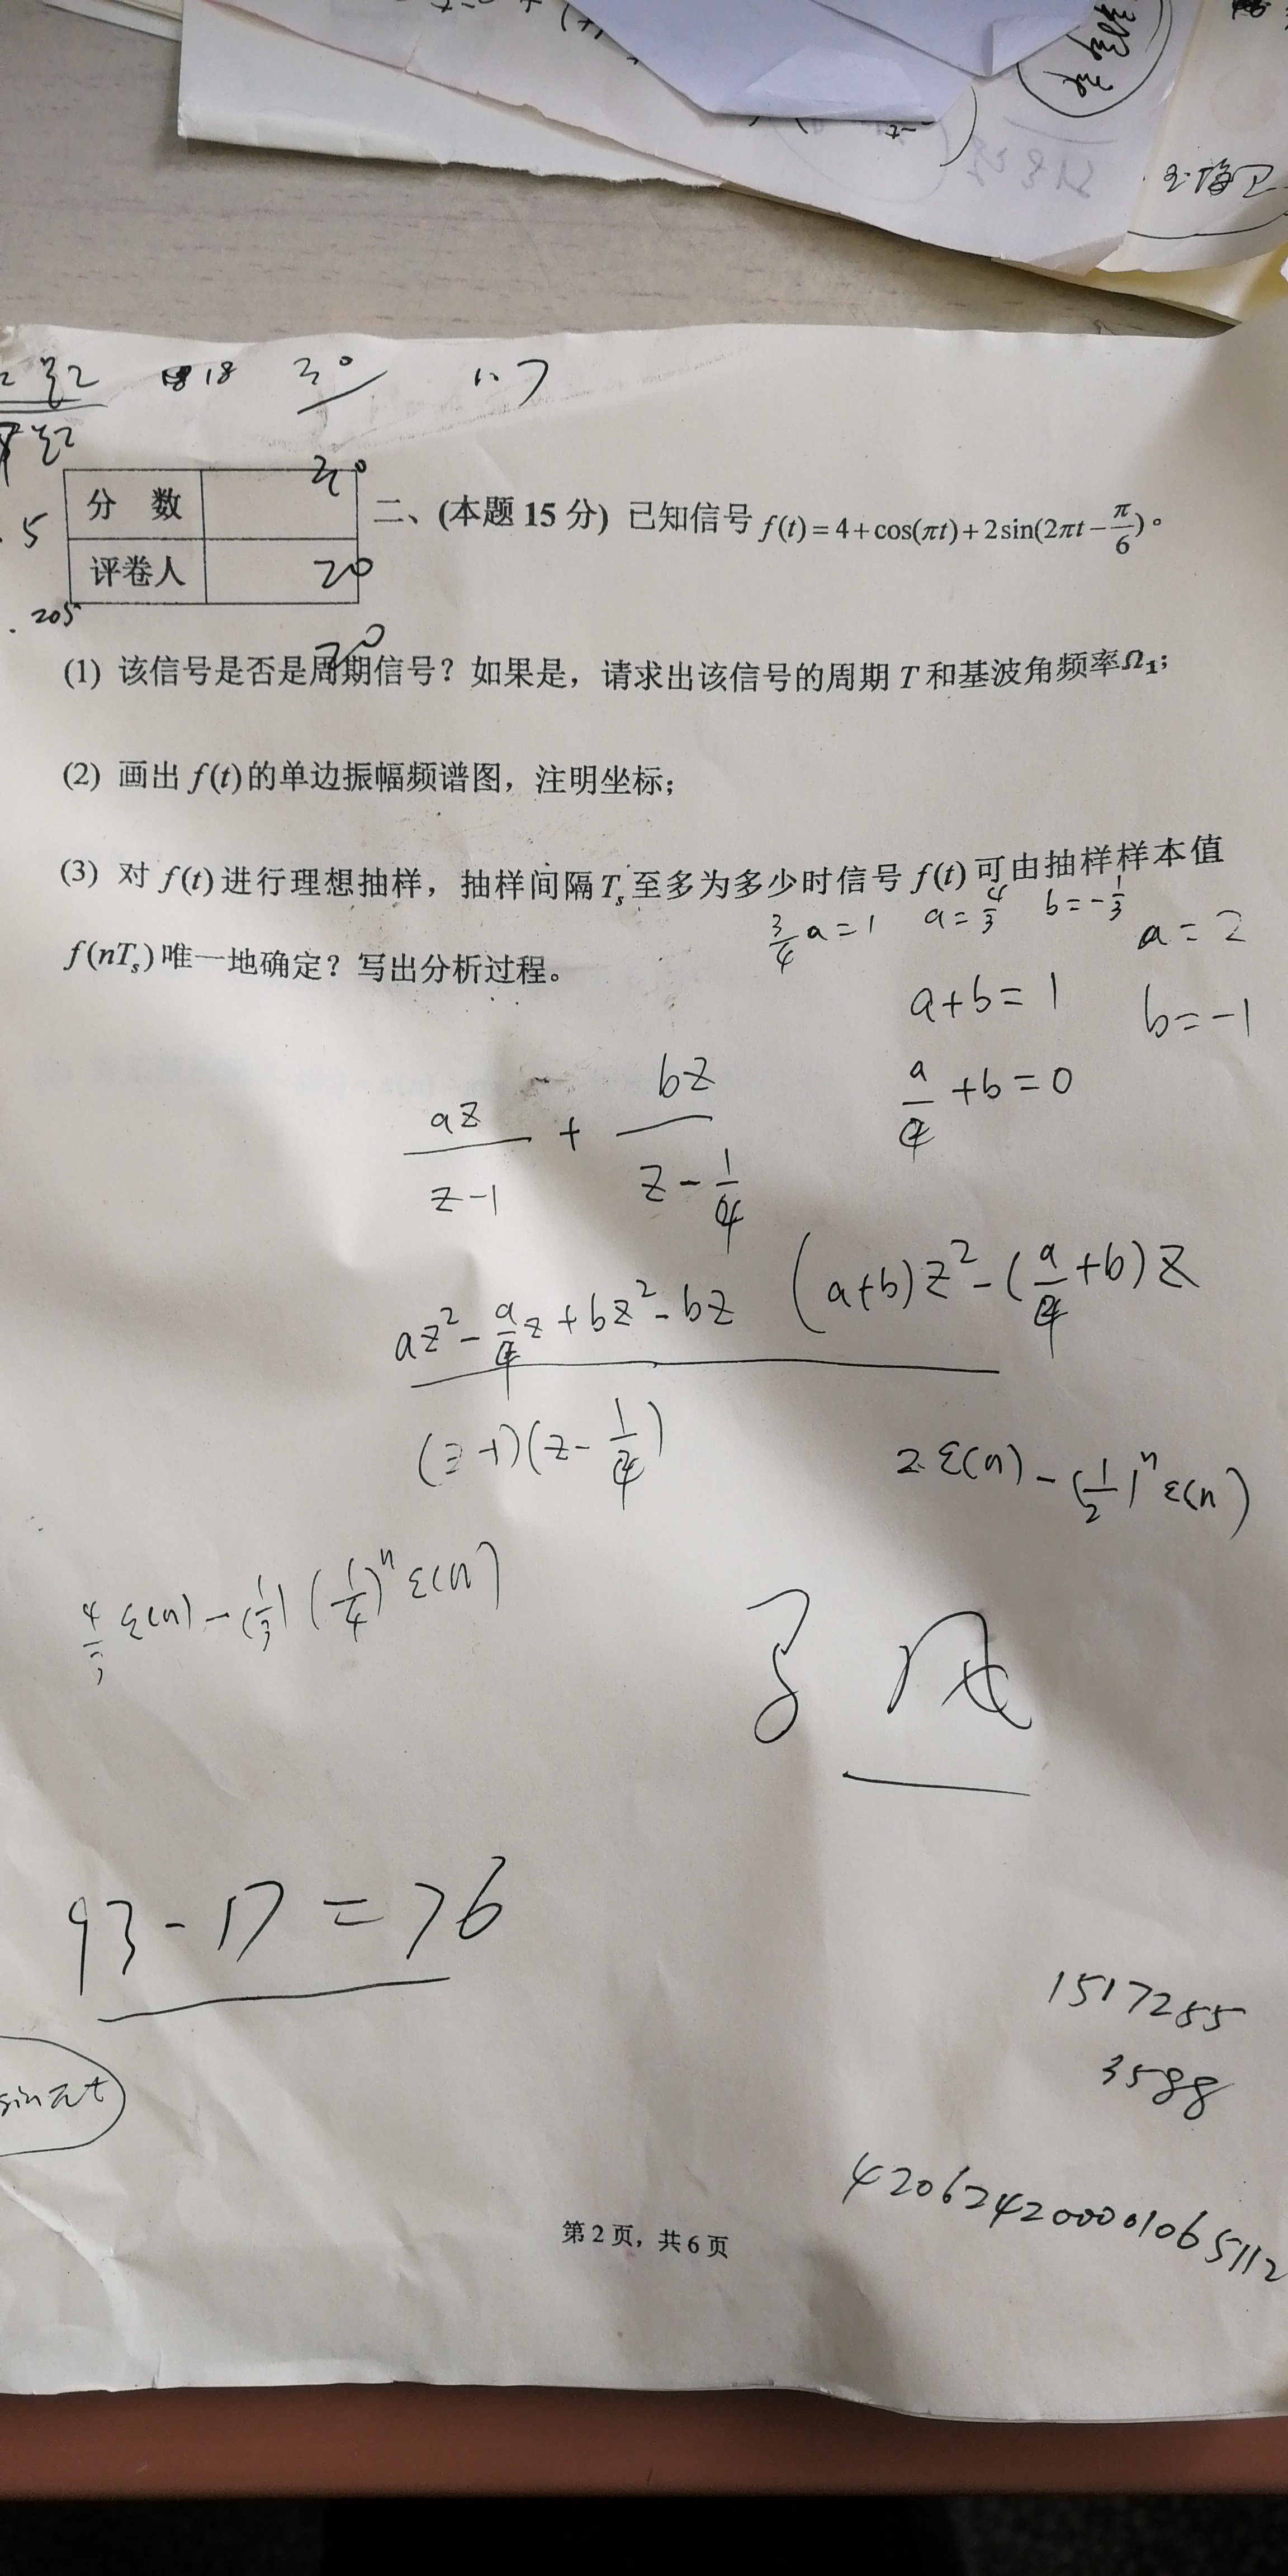 18 30 1.7
分 数 20
评卷人 20
20
5
205
二、(本题 15 分) 已知信号 f(t) = 4 + cos(πt) + 2 sin(2πt − π/6)。
(1) 该信号是否是周期信号？如果是，请求出该信号的周期 T 和基波角频率Ω₁；
(2) 画出 f(t) 的单边振幅频谱图，注明坐标；
(3) 对 f(t) 进行理想抽样，抽样间隔 Tₛ 至多为多少时信号 f(t) 可由抽样样本值
f(nTₛ) 唯一地确定？写出分析过程。
3/4 a = 1 a = 4/3 b = −1/3 a = 2
a + b = 1 b = −1
a/4 + b = 0
az/(z−1) + bz/(z − 1/4)
az² − a/4 z + bz² − bz (a+b)z² − (a/4 + b)z
(z−1)(z − 1/4)
2 ε(n) − (1/2)ⁿ ε(n)
4/3 ε(n) − (1/3) (1/4)ⁿ ε(n)
93 − 17 = 76
1517255
3588
sinπt
420624200001065112
第 2 页，共 6 页